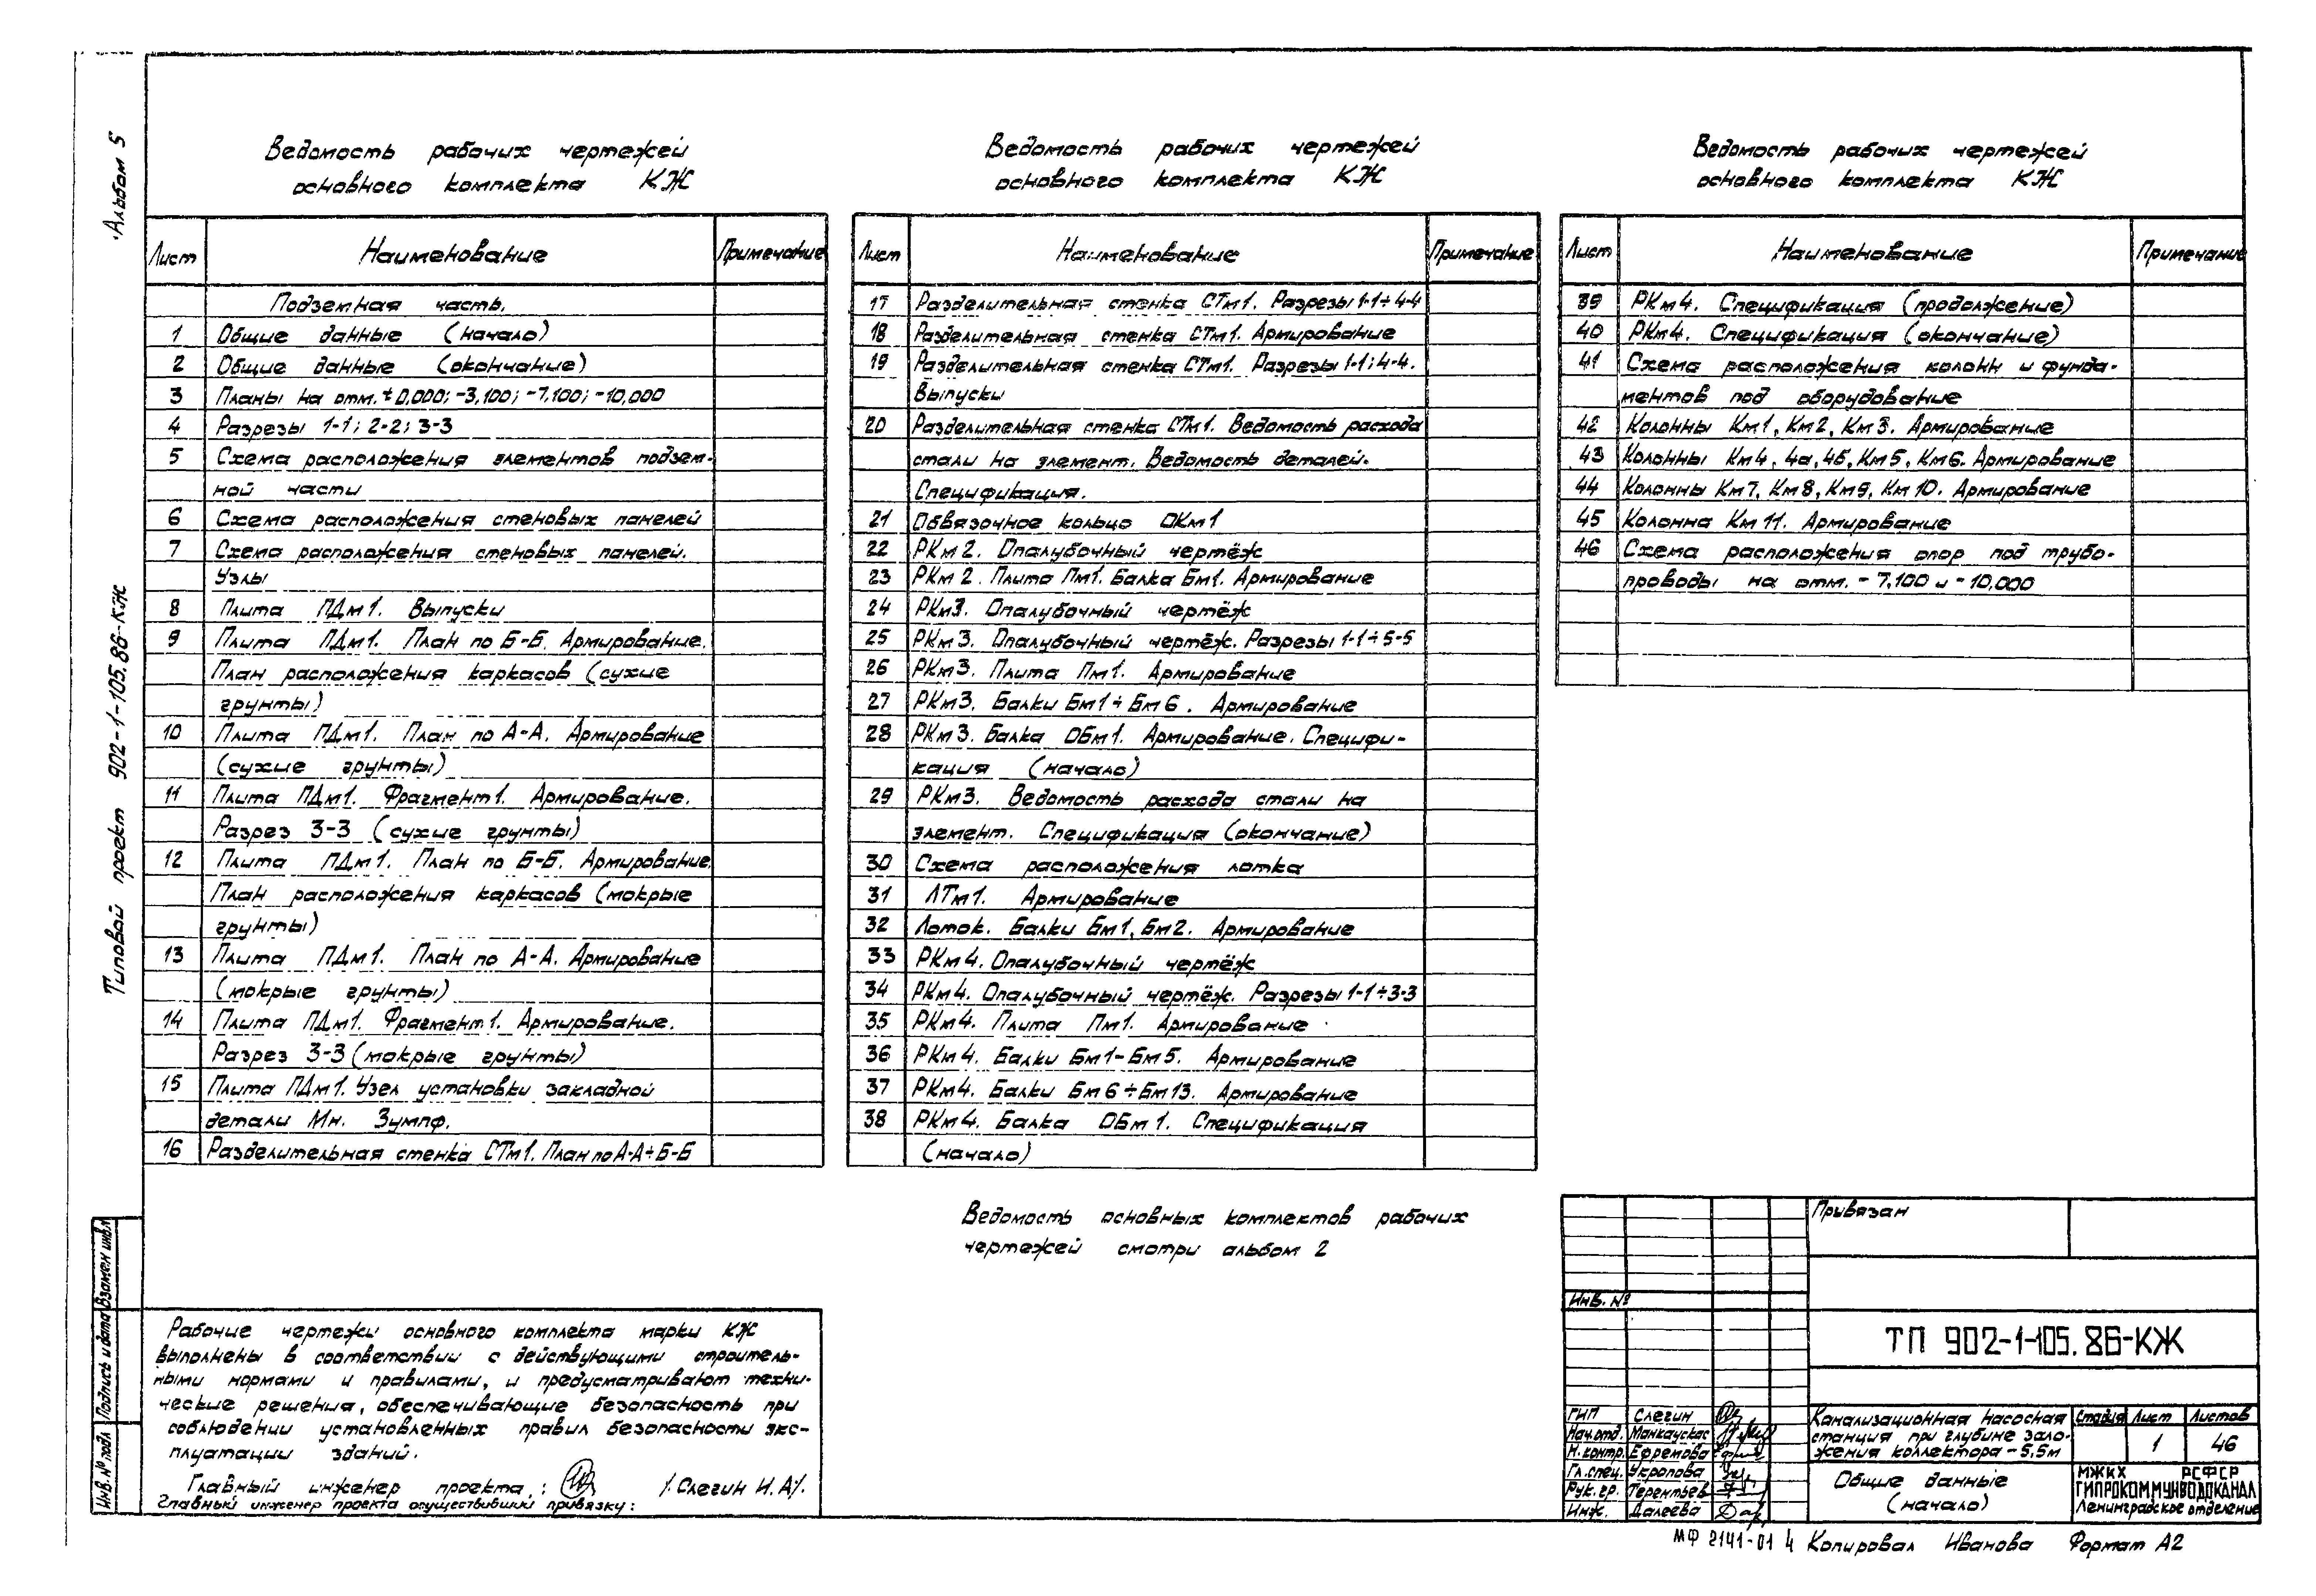 Альбом 5
Типовой проект 902-1-105.86-КЖ
Ведомость рабочих чертежей
основного комплекта КЖ
Лист Наименование Примечание
Подземная часть.
1 Общие данные (начало)
2 Общие данные (окончание)
3 Планы на отм. ±0,000; -3,100; -7,100; -10,000
4 Разрезы 1-1; 2-2; 3-3
5 Схема расположения элементов подзем-
ной части
6 Схема расположения стеновых панелей
7 Схема расположения стеновых панелей.
Узлы
8 Плита ПДм1. Выпуски
9 Плита ПДм1. План по Б-Б. Армирование.
План расположения каркасов (сухие
грунты)
10 Плита ПДм1. План по А-А. Армирование
(сухие грунты)
11 Плита ПДм1. Фрагмент 1. Армирование.
Разрез 3-3 (сухие грунты)
12 Плита ПДм1. План по Б-Б. Армирование.
План расположения каркасов (мокрые
грунты)
13 Плита ПДм1. План по А-А. Армирование
(мокрые грунты)
14 Плита ПДм1. Фрагмент 1. Армирование.
Разрез 3-3 (мокрые грунты)
15 Плита ПДм1. Узел установки закладной
детали Мн. Зумпф.
16 Разделительная стенка СТм1. План по А-А÷Б-Б
Ведомость рабочих чертежей
основного комплекта КЖ
Лист Наименование Примечание
17 Разделительная стенка СТм1. Разрезы 1-1÷4-4
18 Разделительная стенка СТм1. Армирование
19 Разделительная стенка СТм1. Разрезы 1-1; 4-4.
Выпуски
20 Разделительная стенка СТм1. Ведомость расхода
стали на элемент. Ведомость деталей.
Спецификация.
21 Обвязочное кольцо ОКм1
22 РКм2. Опалубочный чертёж
23 РКм2. Плита Пм1. Балка Бм1. Армирование
24 РКм3. Опалубочный чертёж
25 РКм3. Опалубочный чертёж. Разрезы 1-1÷5-5
26 РКм3. Плита Пм1. Армирование
27 РКм3. Балки Бм1÷Бм6. Армирование
28 РКм3. Балка ОБм1. Армирование. Специфи-
кация (начало)
29 РКм3. Ведомость расхода стали на
элемент. Спецификация (окончание)
30 Схема расположения лотка
31 ЛТм1. Армирование
32 Лоток. Балки Бм1, Бм2. Армирование
33 РКм4. Опалубочный чертёж
34 РКм4. Опалубочный чертёж. Разрезы 1-1÷3-3
35 РКм4. Плита Пм1. Армирование
36 РКм4. Балки Бм1-Бм5. Армирование
37 РКм4. Балки Бм6÷Бм13. Армирование
38 РКм4. Балка ОБм1. Спецификация
(начало)
Ведомость рабочих чертежей
основного комплекта КЖ
Лист Наименование Примечание
39 РКм4. Спецификация (продолжение)
40 РКм4. Спецификация (окончание)
41 Схема расположения колонн и фунда-
ментов под оборудование
42 Колонны Км1, Км2, Км3. Армирование
43 Колонны Км4, 4а, 4б, Км5, Км6. Армирование
44 Колонны Км7, Км8, Км9, Км10. Армирование
45 Колонна Км11. Армирование
46 Схема расположения опор под трубо-
проводы на отм. -7,100 и -10,000
Ведомость основных комплектов рабочих
чертежей смотри альбом 2
Рабочие чертежи основного комплекта марки КЖ
выполнены в соответствии с действующими строитель-
ными нормами и правилами, и предусматривают техни-
ческие решения, обеспечивающие безопасность при
соблюдении установленных правил безопасности экс-
плуатации зданий.
Главный инженер проекта: /Слегин И.А/.
Главный инженер проекта осуществивший привязку:
Инв. № подл Подпись и дата Взамен инв№
Привязан
Инв. №
ТП 902-1-105.86-КЖ
ГИП Слегин
Нач.отд. Манкаускас
Н.контр. Ефремова
Гл.спец. Укропова
Рук.гр. Терентьев
Инж. Далеева
Канализационная насосная
станция при глубине зало-
жения коллектора -5,5м
Стадия Лист Листов
1 46
Общие данные
(начало)
МЖКХ РСФСР
ГИПРОКОММУНВОДОКАНАЛ
Ленинградское отделение
МФ 2141-01 4 Копировал Иванова Формат А2